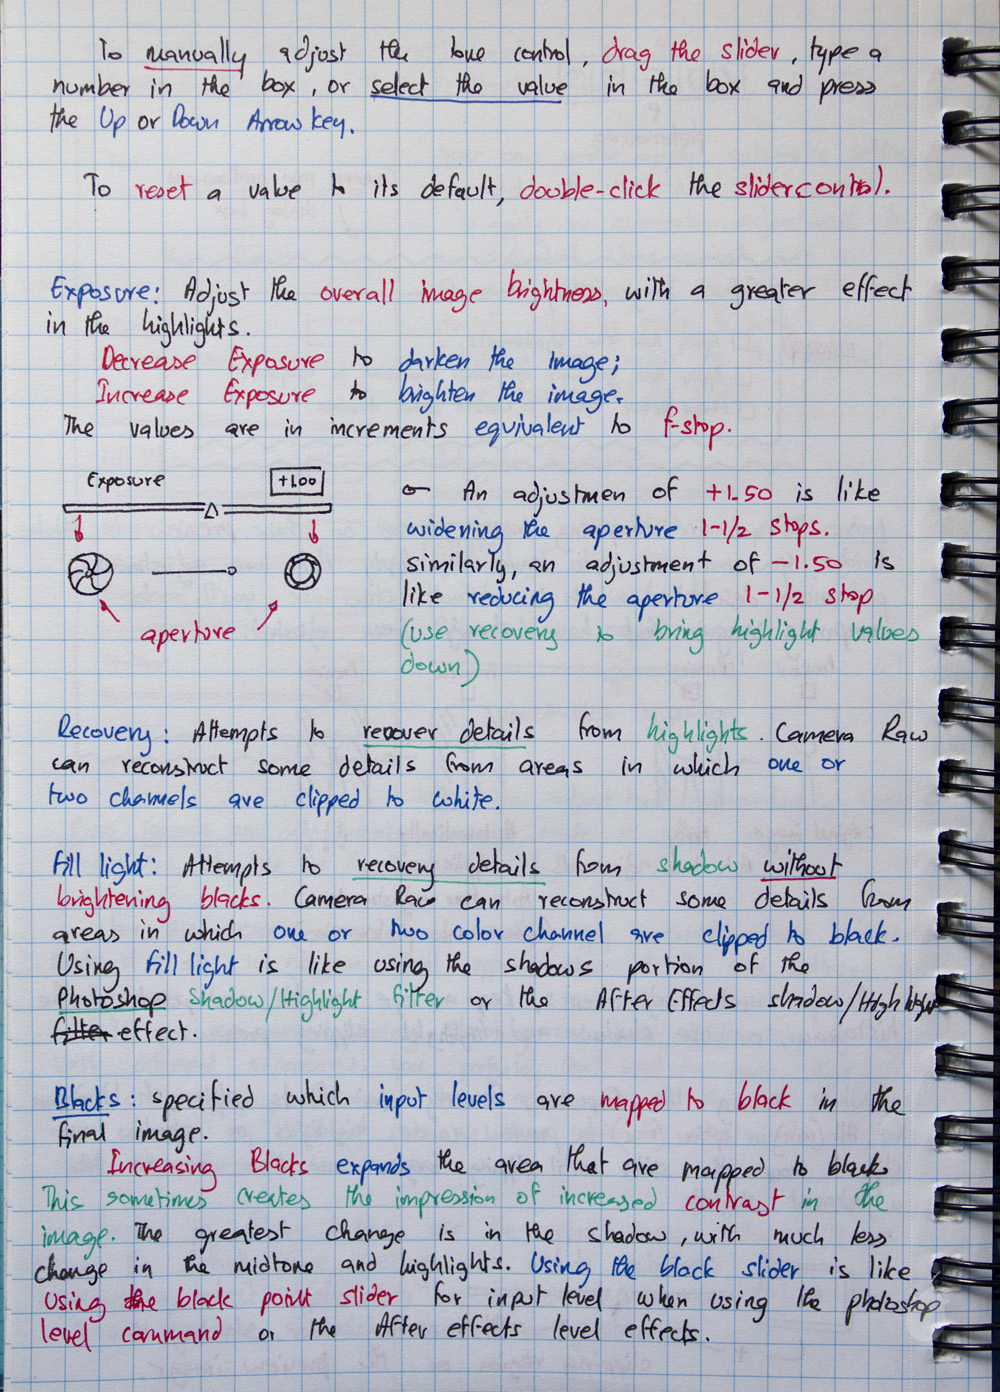 To manually adjust the tone control, drag the slider, type a
number in the box, or select the value in the box and press
the Up or Down Arrow key.
To reset a value to its default, double-click the slider control.
Exposure: Adjust the overall image brightness, with a greater effect
in the highlights.
Decrease Exposure to darken the image;
Increase Exposure to brighten the image.
The values are in increments equivalent to f-stop.
Exposure +1.00
aperture
An adjustmen of +1.50 is like
widening the aperture 1-1/2 stops.
similarly, an adjustment of -1.50 is
like reducing the aperture 1-1/2 stop
(use recovery to bring highlight values
down)
Recovery: Attempts to recover details from highlights. Camera Raw
can reconstruct some details from areas in which one or
two channels are clipped to white.
Fill light: Attempts to recovery details from shadow without
brightening blacks. Camera Raw can reconstruct some details from
areas in which one or two color channel are clipped to black.
Using fill light is like using the shadows portion of the
Photoshop Shadow/Highlight filter or the After Effects shadow/Highlight
filter effect.
Blacks: specified which input levels are mapped to black in the
final image.
Increasing Blacks expands the area that are mapped to black
This sometimes creates the impression of increased contrast in the
image. The greatest change is in the shadow, with much less
change in the midtone and highlights. Using the black slider is like
using the black point slider for input level when using the photoshop
level command or the After effects level effects.